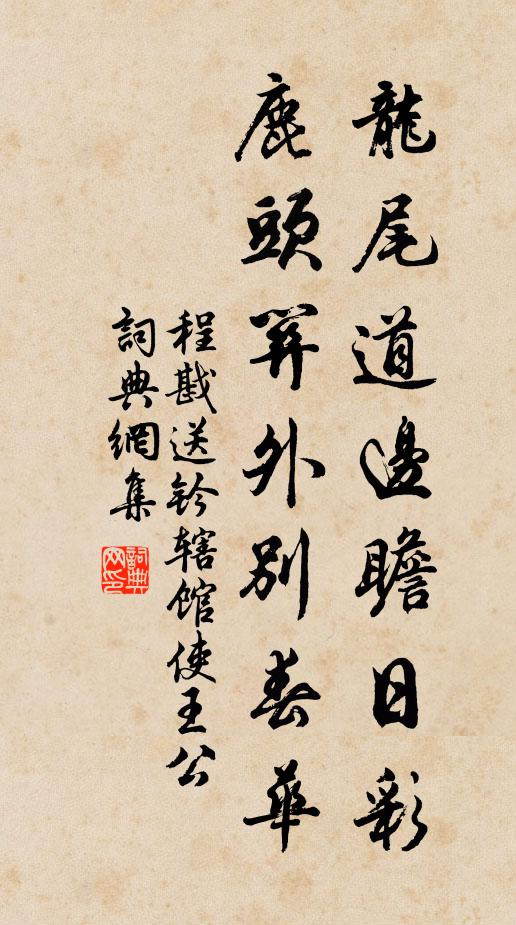 龍尾道邊瞻日彩
鹿頭關外別春華
程戡送鈐轄館使王公
詞典網集
詞典
网印